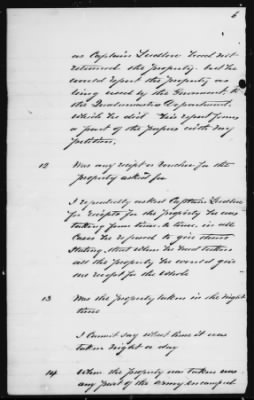 6
as Captain had not
returned the property. but he
would report the property as
being used by the Government, to
the Quartermaster Department.
Which he did. This report forms
a part of the papers with my
petition,
12 Was any receipt or voucher for the
property asked for
I repeatedly asked Captain
for receipts for the property he was
taking from time to time, in all
Cases he refused to give them
Stating that when he had taken
all the property he would give
me receipt for the whole
13 Was the property taken in the night
time
I cannot say what time it was
taken night or day
14 When the property was taken was
any part of the army encamped